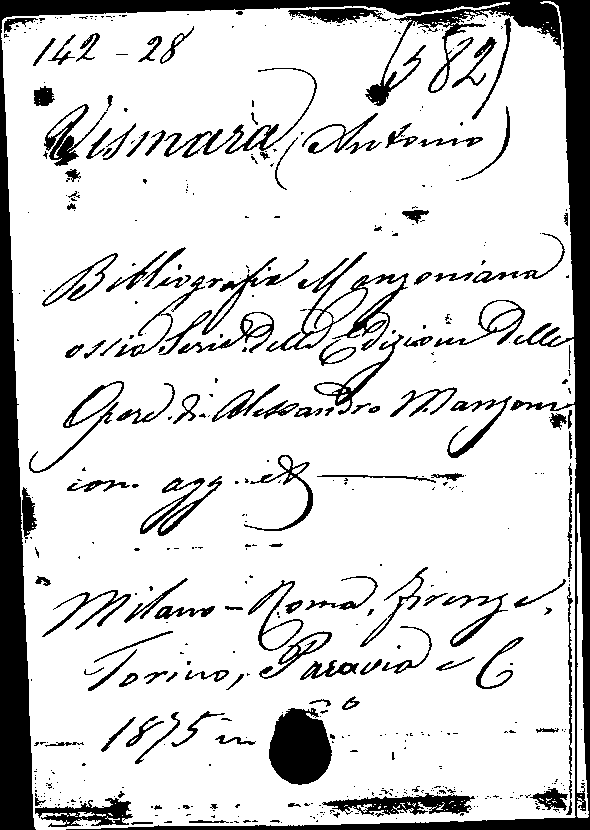 142 - 28 (582)
Vismara (Antonio)
Bibliografia Manzoniana
ossia Serie delle Edizioni delle
Opere di Alessandro Manzoni
con agg. etc
Milano - Roma, Firenze,
Torino, Paravia e C.
1875 in